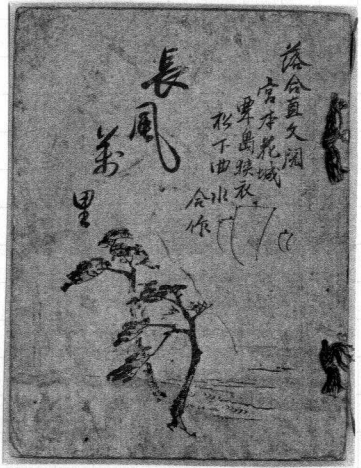 落合直文閲
宮本花城
粟島狭衣
松下曲水
合作
長風
萬里